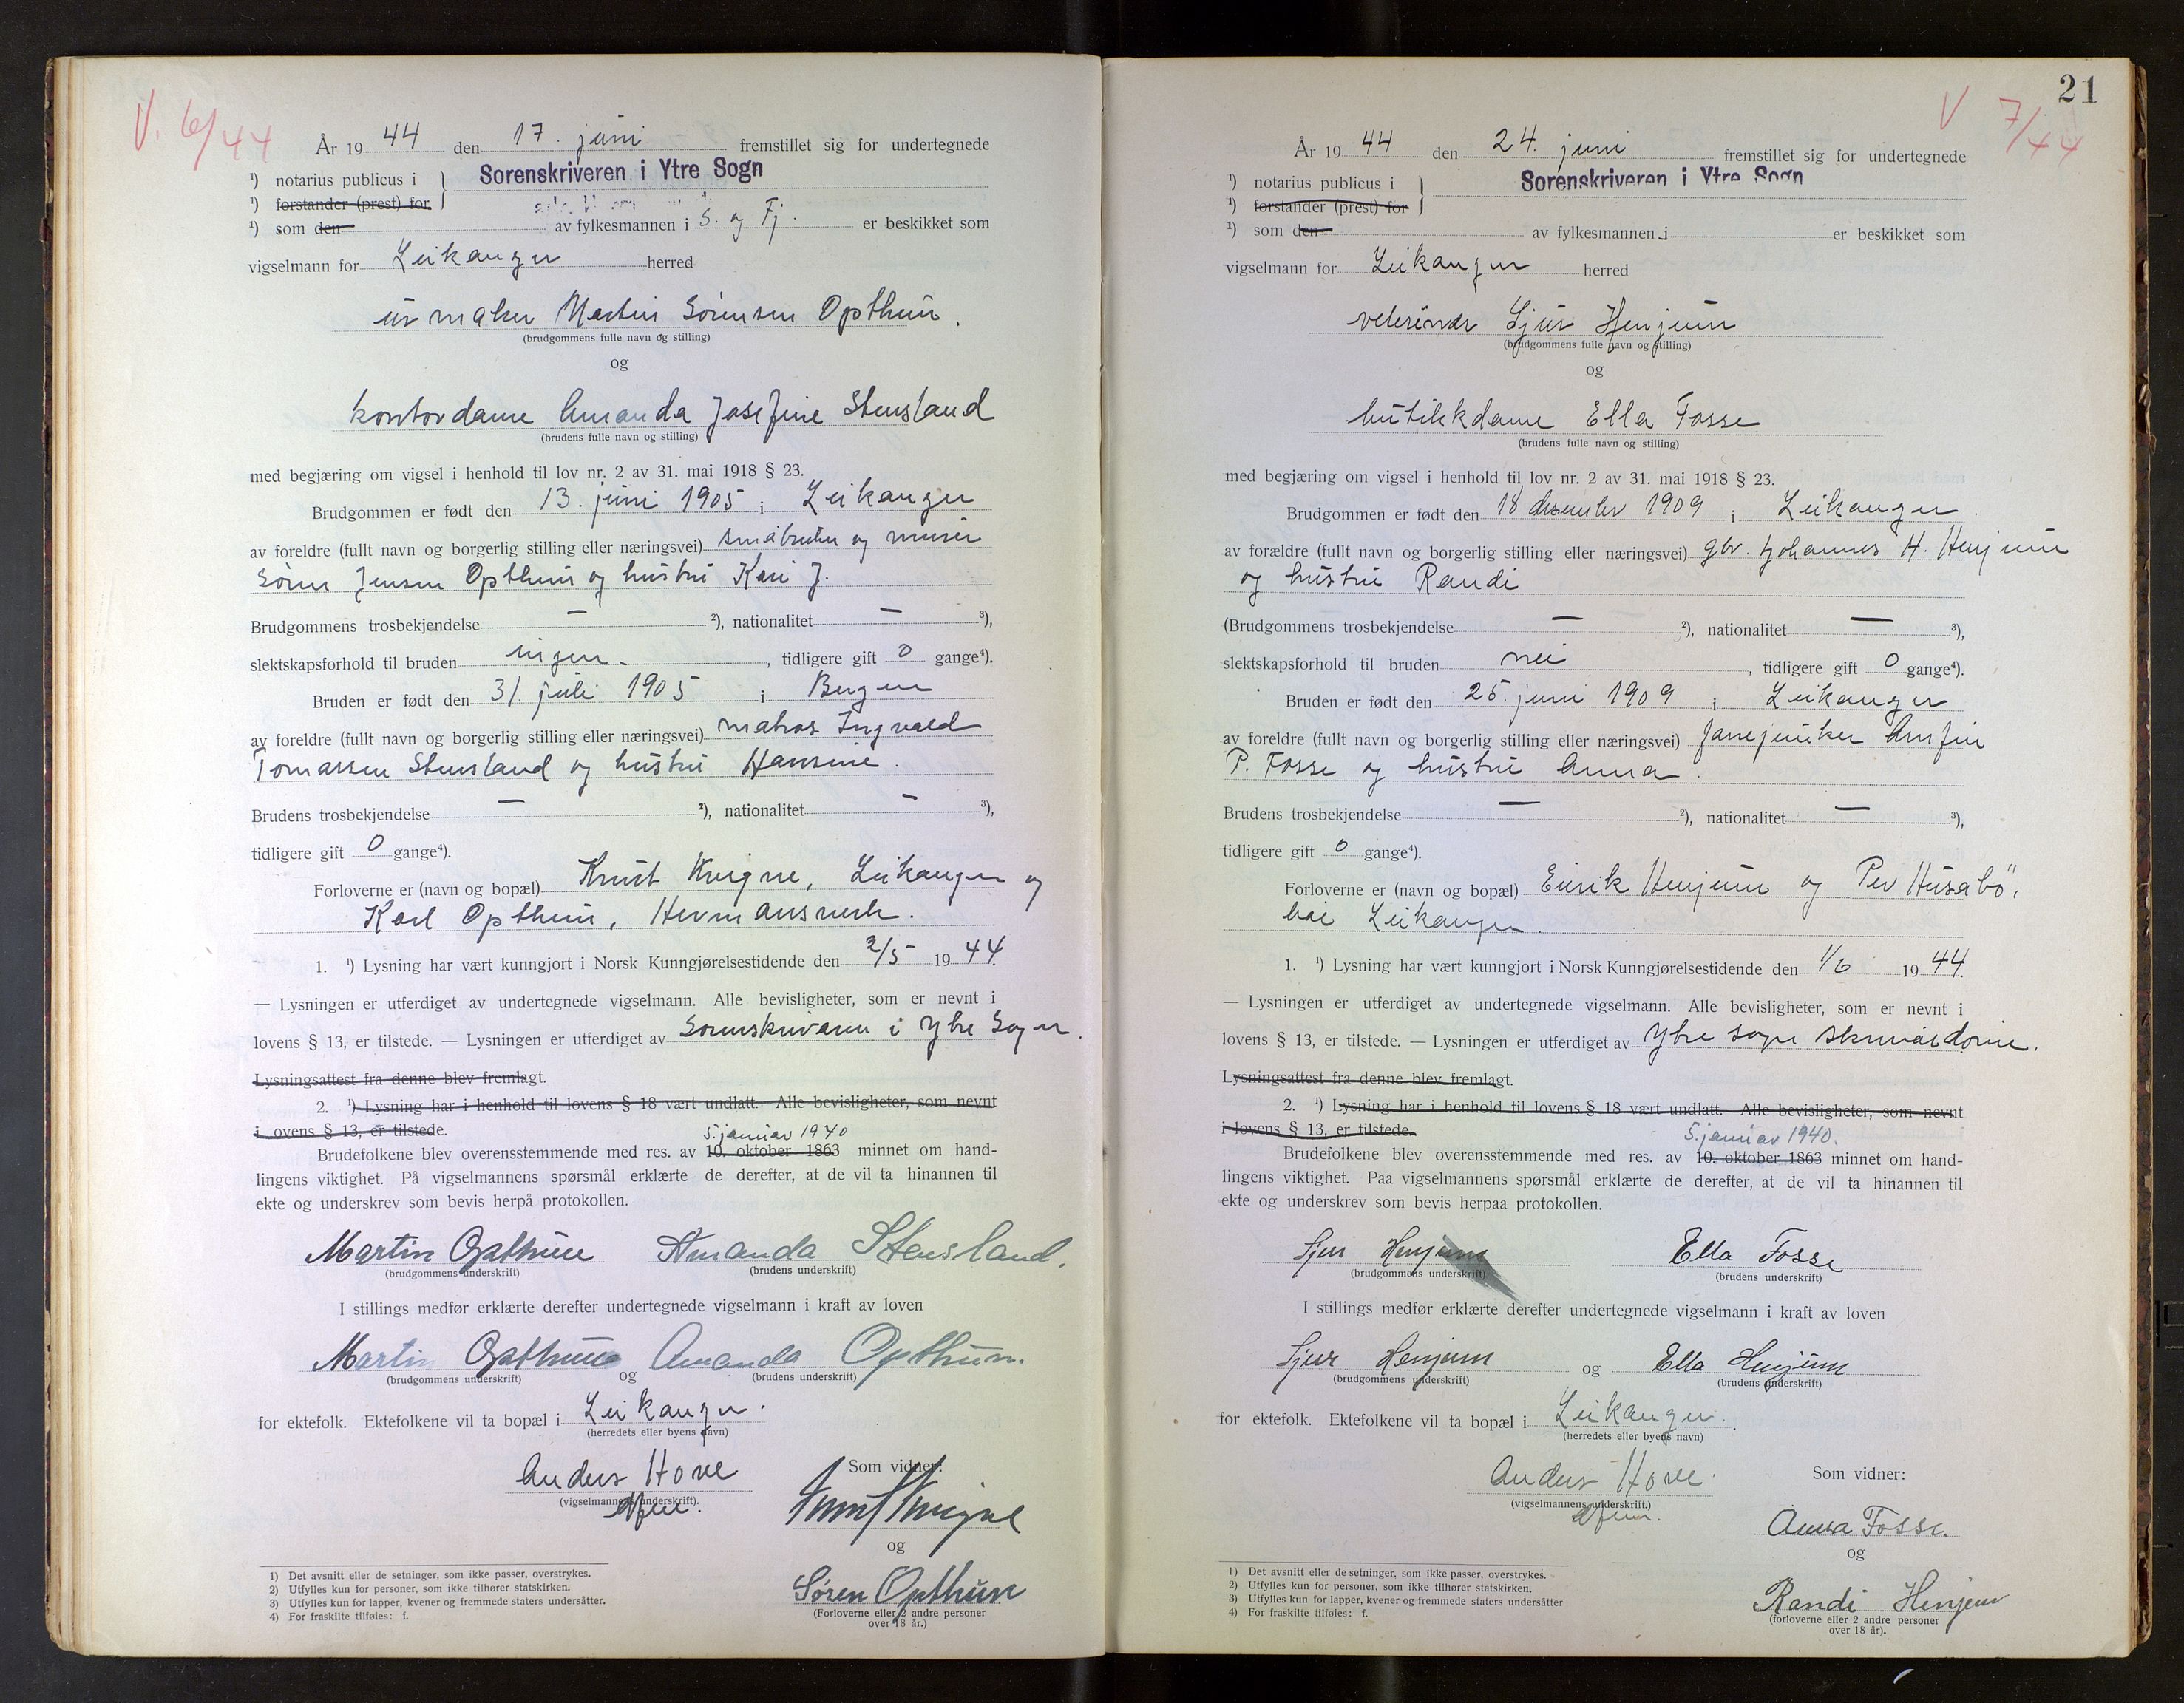 V. 6/44
År 19 44 den 17. juni fremstillet sig for undertegnede
¹) notarius publicus i } Sorenskriveren i Ytre Sogn
¹) forstander (prest) for
¹) som den av fylkesmannen i S. og Fj. er beskikket som
vigselmann for Leikanger herred
urmaker Martin Sørensen Opthun.
(brudgommens fulle navn og stilling)
og
kontordame Amanda Josefine Stensland
(brudens fulle navn og stilling)
med begjæring om vigsel i henhold til lov nr. 2 av 31. mai 1918 § 23.
Brudgommen er født den 13. juni 1905 i Leikanger
av foreldre (fullt navn og borgerlig stilling eller næringsvei) småbruker og murer
Søren Jensen Opthun og hustru Kari J.
Brudgommens trosbekjendelse — ²), nationalitet — ³),
slektskapsforhold til bruden ingen. , tidligere gift 0 gange⁴).
Bruden er født den 31. juli 1905 i Bergen
av foreldre (fullt navn og borgerlig stilling eller næringsvei) matros Ingvald
Tomassen Stensland og hustru Hansine.
Brudens trosbekjendelse — ²), nationalitet — ³),
tidligere gift 0 gange⁴).
Forloverne er (navn og bopæl) Knut Kvigne, Leikanger og
Karl Opthun, Hermansverk.
1. ¹) Lysning har vært kunngjort i Norsk Kunngjørelsestidende den 2/5 19 44.
— Lysningen er utferdiget av undertegnede vigselmann. Alle bevisligheter, som er nevnt i
lovens § 13, er tilstede. — Lysningen er utferdiget av Sorenskrivaren i Ytre Sogn.
Lysningsattest fra denne blev fremlagt.
2. ¹) Lysning har i henhold til lovens § 18 vært undlatt. Alle bevisligheter, som nevnt
i ovens § 13, er tilstede.
5. januar 1940
Brudefolkene blev overensstemmende med res. av 10. oktober 1863 minnet om hand-
lingens viktighet. På vigselmannens spørsmål erklærte de derefter, at de vil ta hinannen til
ekte og underskrev som bevis herpå protokollen.
Martin Opthun Amanda Stensland.
(brudgommens underskrift) (brudens underskrift)
I stillings medfør erklærte derefter undertegnede vigselmann i kraft av loven
Martin Opthun og Amanda Opthun.
(brudgommens underskrift) (brudens underskrift)
for ektefolk. Ektefolkene vil ta bopæl i Leikanger.
(herredets eller byens navn)
Anders Hove Som vidner:
(vigselmannens underskrift).
Knut Kvigne
og
Søren Opthun
(Forloverne eller 2 andre personer
over 18 år.)
1) Det avsnitt eller de setninger, som ikke passer, overstrykes.
2) Utfylles kun for personer, som ikke tilhører statskirken.
3) Utfylles kun for lapper, kvener og fremmede staters undersåtter.
4) For fraskilte tilføies: f.
21
V 7/44
År 19 44 den 24. juni fremstillet sig for undertegnede
¹) notarius publicus i } Sorenskriveren i Ytre Sogn
¹) forstander (prest) for
¹) som den av fylkesmannen i er beskikket som
vigselmann for Leikanger herred
veterinær Sjur Henjum
(brudgommens fulle navn og stilling)
og
butikkdame Ella Fosse
(brudens fulle navn og stilling)
med begjæring om vigsel i henhold til lov nr. 2 av 31. mai 1918 § 23.
Brudgommen er født den 18 desember 1909 i Leikanger.
av forældre (fullt navn og borgerlig stilling eller næringsvei) gbr. Johannes H. Henjum
og hustru Randi
(Brudgommens trosbekjendelse — ²), nationalitet — ³),
slektskapsforhold til bruden nei , tidligere gift 0 gange⁴).
Bruden er født den 25. juni 1909 i Leikanger
av foreldre (fullt navn og borgerlig stilling eller næringsvei) fanejunker Arnfin
P. Fosse og hustru Anna.
Brudens trosbekjendelse — ²), nationalitet — ³),
tidligere gift 0 gange⁴).
Forloverne er (navn og bopæl) Eirik Henjum og Per Husabö,
bæ Leikanger.
1. ¹) Lysning har vært kunngjort i Norsk Kunngjørelsestidende den 1/6 19 44.
— Lysningen er utferdiget av undertegnede vigselmann. Alle bevisligheter, som er nevnt i
lovens § 13, er tilstede. — Lysningen er utferdiget av Ytre Sogn skrivardøme.
Lysningsattest fra denne blev fremlagt.
2. ¹) Lysning har i henhold til lovens § 18 vært undlatt. Alle bevisligheter, som nevnt
i lovens § 13, er tilstede.
5. januar 1940.
Brudefolkene blev overensstemmende med res. av 10. oktober 1863 minnet om hand-
lingens viktighet. Paa vigselmannens spørsmål erklærte de derefter, at de vil ta hinannen til
ekte og underskrev som bevis herpaa protokollen.
Sjur Henjum Ella Fosse
(brudgommens underskrift) (brudens underskrift)
I stillings medfør erklærte derefter undertegnede vigselmann i kraft av loven
Sjur Henjum og Ella Henjum
(brudgommens underskrift) (brudens underskrift)
for ektefolk. Ektefolkene vil ta bopæl i Leikanger.
(herredets eller byens navn)
Anders Hove. Som vidner:
(vigselmannens underskrift.)
Anna Fosse.
og
Randi Henjum
(forloverne eller 2 andre personer
over 18 år).
1) Det avsnitt eller de setninger, som ikke passer, overstrykes.
2) Utfylles kun for personer, som ikke tilhører statskirken.
3) Utfylles kun for lapper, kvener og fremmede staters undersåtter
4) For fraskilte tilføies: f.